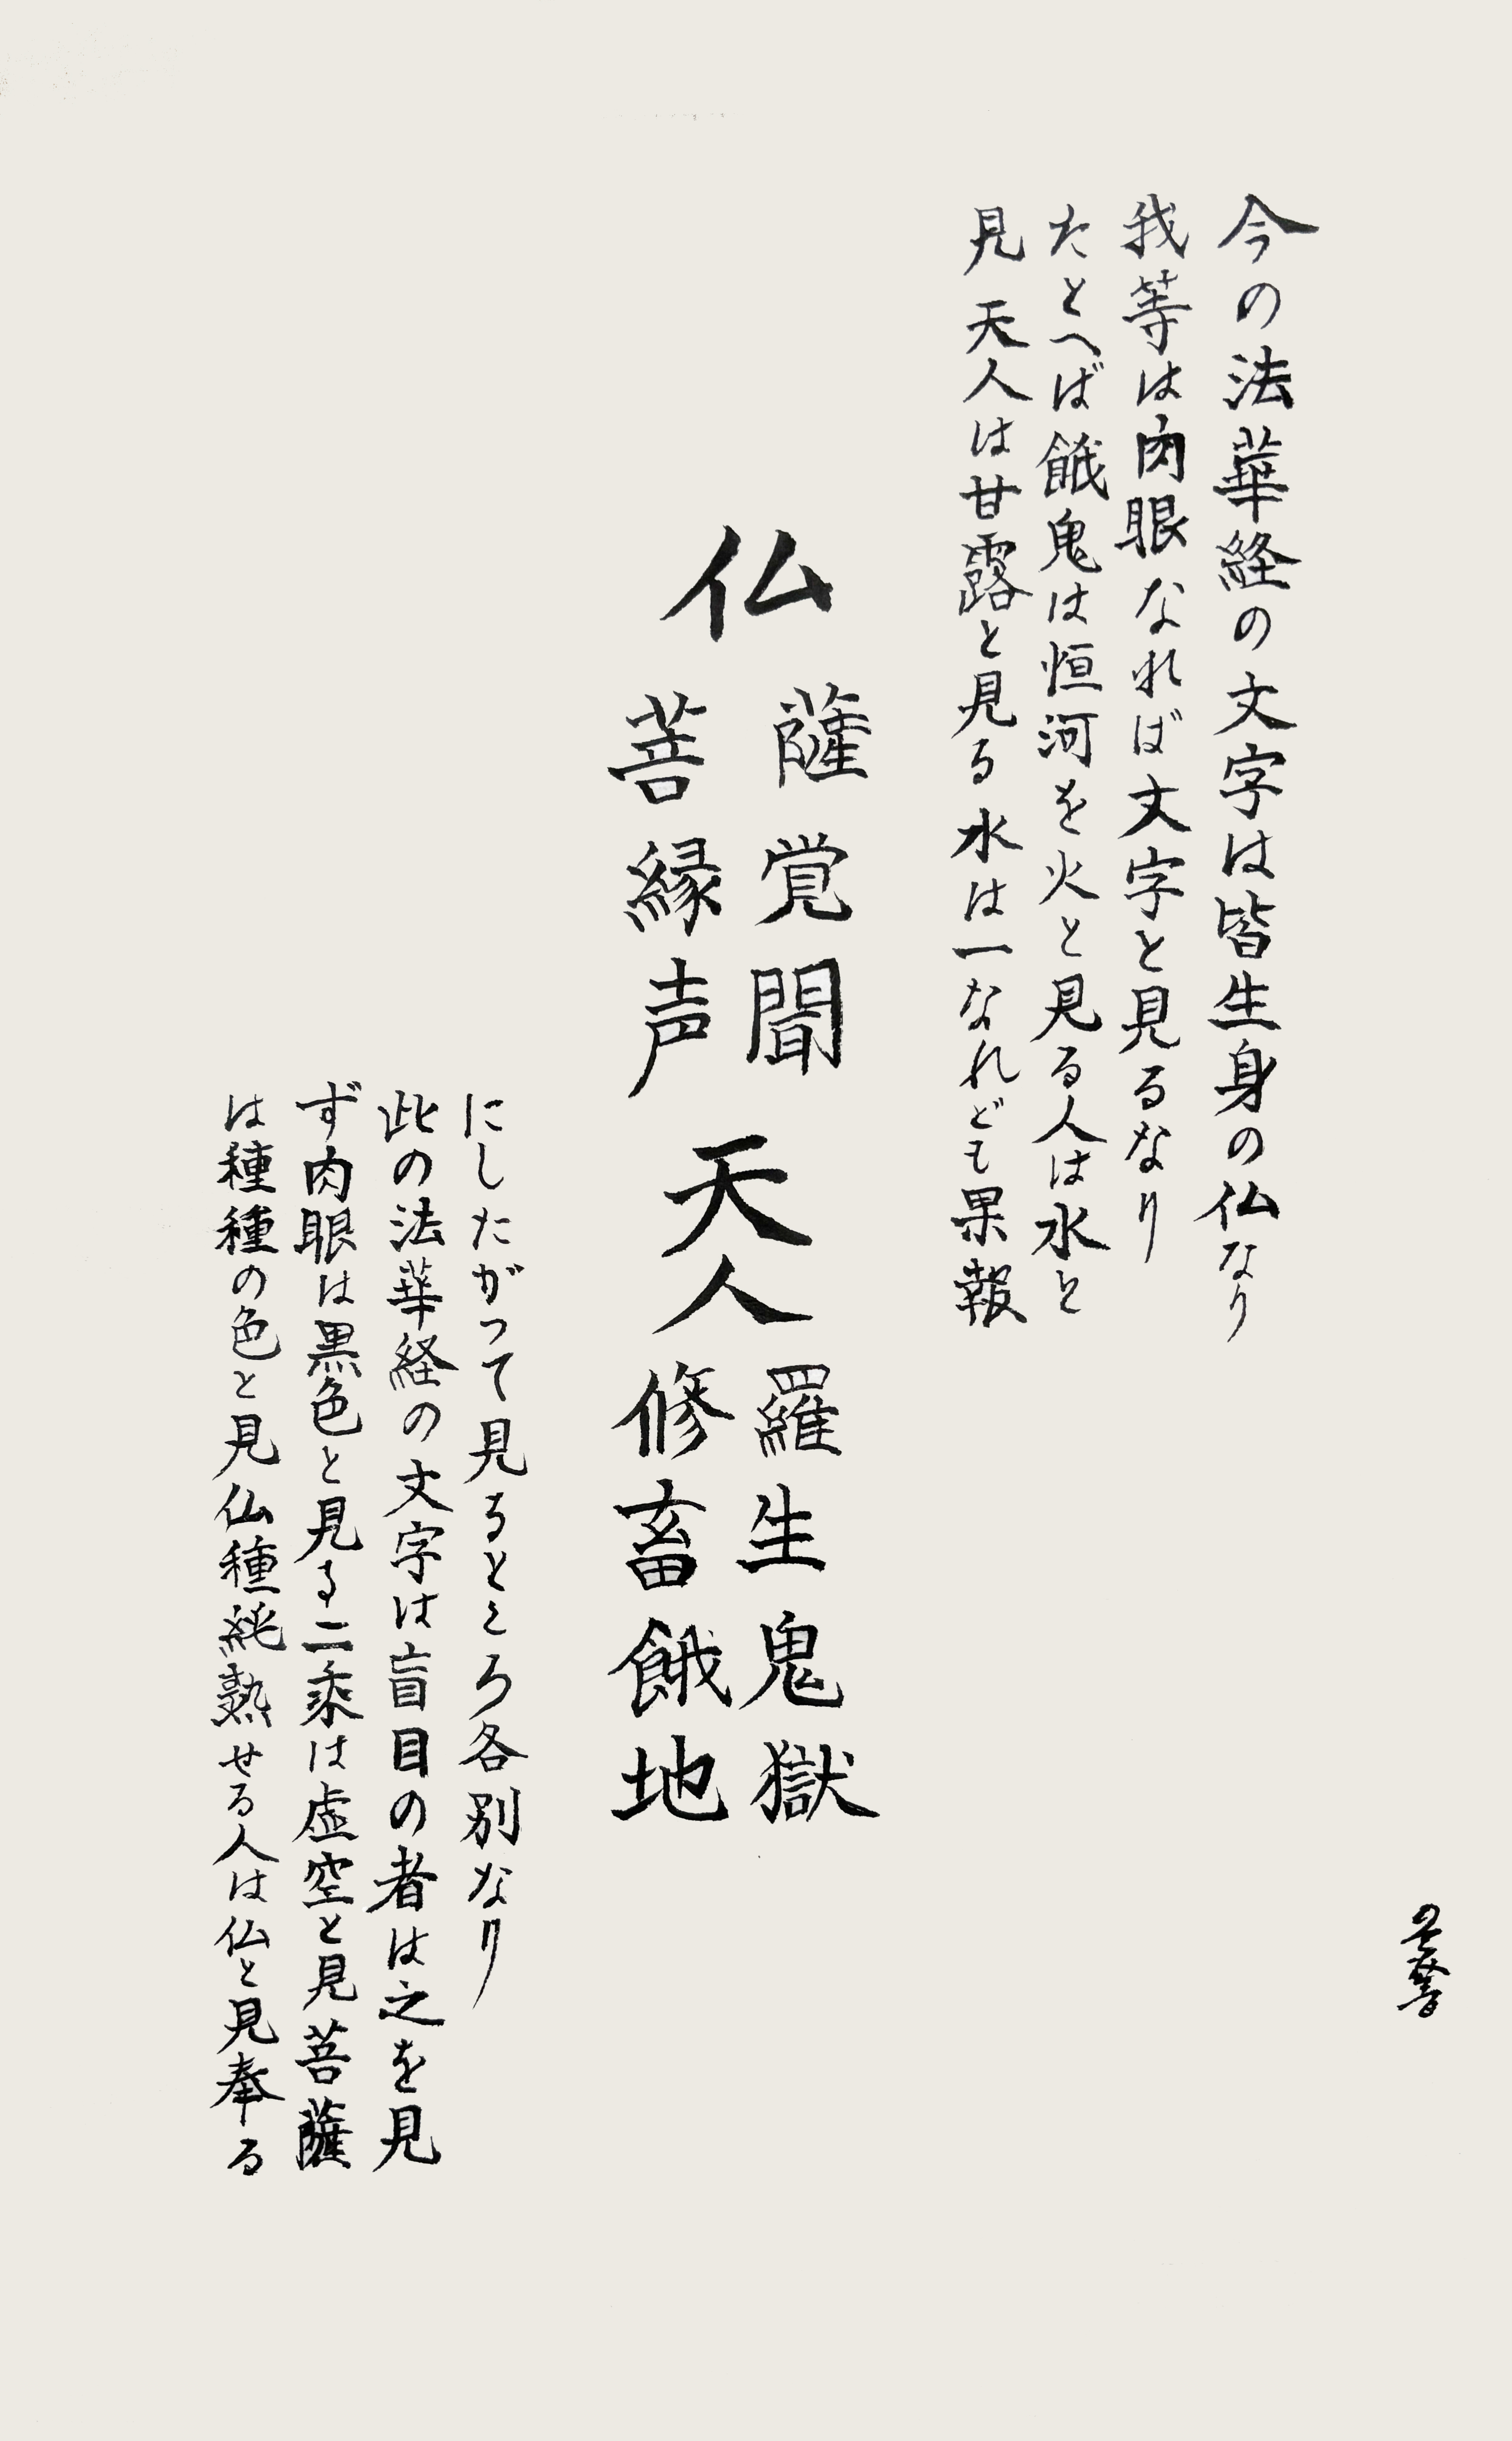 今の法華経の文字は皆生身の仏なり
我等は肉眼なれば文字と見るなり
たとへば餓鬼は恒河を火と見る人は水と
見天人は甘露と見る水は一なれども果報
仏
菩薩
縁覚
声聞
天人
修羅
畜生
餓鬼
地獄
にしたがって見るところ各別なり
此の法華経の文字は盲目の者は之を見
ず肉眼は黒色と見る二乗は虚空と見菩薩
は種種の色と見仏種純熟せる人は仏と見奉る